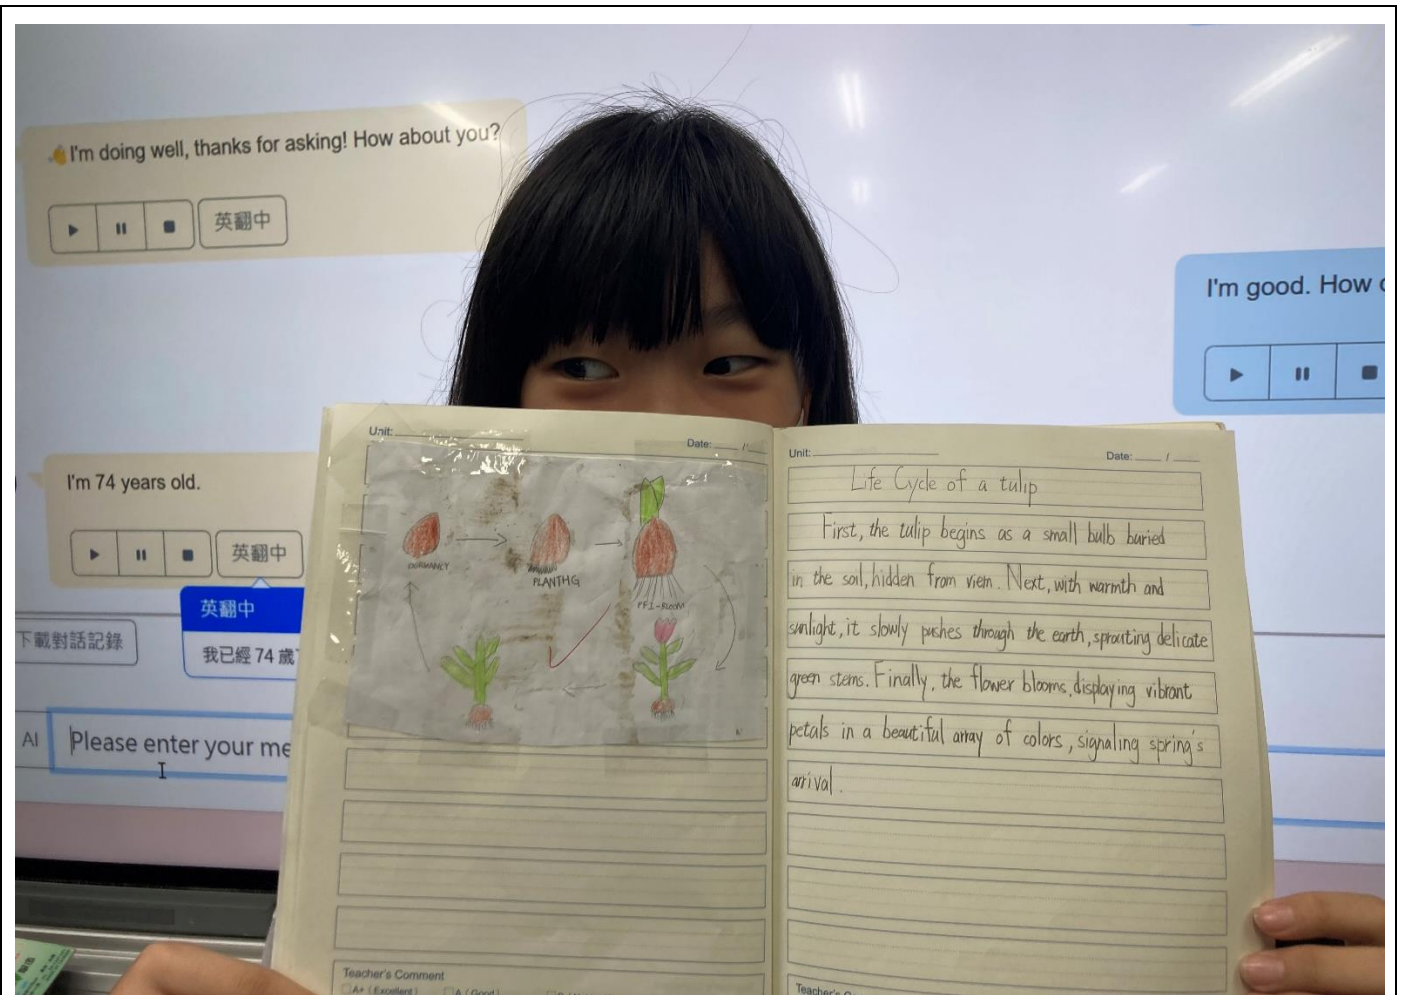 I'm doing well, thanks for asking! How about you?
英翻中
I'm good. How
I'm 74 years old.
英翻中
英翻中
我已經 74 歲
下載對話記錄
AI
Please enter your me
Unit:
Date: /
DORMANCY
PLANTHG
PFI-BLOOM
Teacher's Comment
A+ (Excellent)
A (Good)
Unit:
Date: /
Life Cycle of a tulip
First, the tulip begins as a small bulb buried
in the soil, hidden from view. Next, with warmth and
sunlight, it slowly pushes through the earth, sprouting delicate
green stems. Finally, the flower blooms, displaying vibrant
petals in a beautiful array of colors, signaling spring's
arrival.
Teacher's